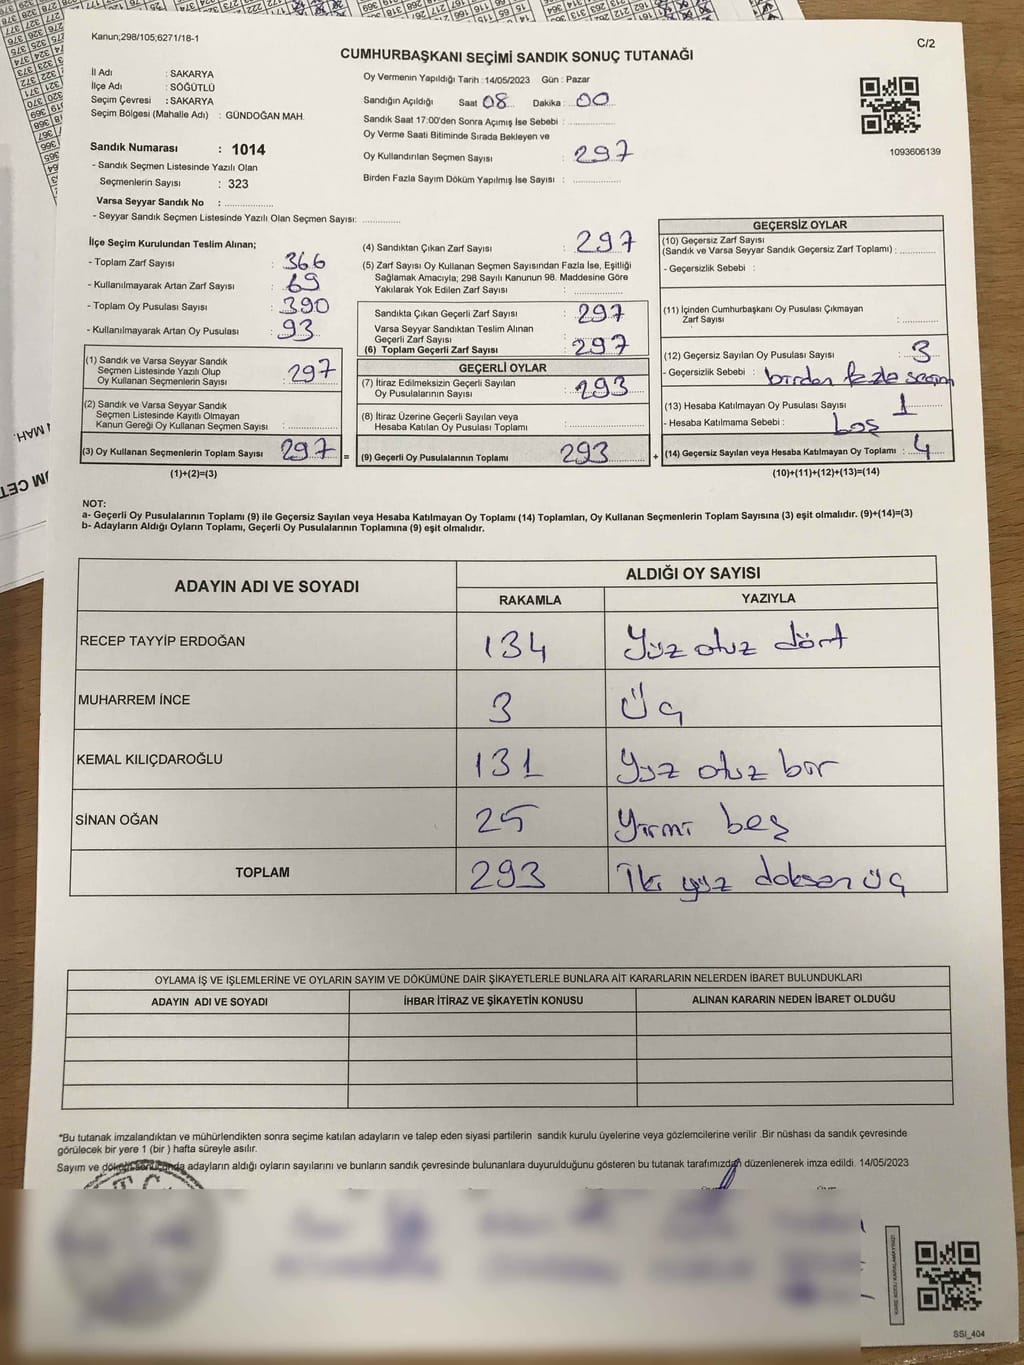 Kanun;298/105;6271/18-1
C/2
CUMHURBAŞKANI SEÇİMİ SANDIK SONUÇ TUTANAĞI
İl Adı : SAKARYA
İlçe Adı : SÖĞÜTLÜ
Seçim Çevresi : SAKARYA
Seçim Bölgesi (Mahalle Adı) : GÜNDOĞAN MAH.
Sandık Numarası : 1014
- Sandık Seçmen Listesinde Yazılı Olan
Seçmenlerin Sayısı : 323
Varsa Seyyar Sandık No :
- Seyyar Sandık Seçmen Listesinde Yazılı Olan Seçmen Sayısı:
Oy Vermenin Yapıldığı Tarih :14/05/2023 Gün : Pazar
Sandığın Açıldığı Saat 08 Dakika : 00
Sandık Saat 17:00'den Sonra Açımış İse Sebebi :
Oy Verme Saati Bitiminde Sırada Bekleyen ve
Oy Kullandırılan Seçmen Sayısı : 297
Birden Fazla Sayım Döküm Yapılmış İse Sayısı :
1093606139
İlçe Seçim Kurulundan Teslim Alınan;
- Toplam Zarf Sayısı : 366
- Kullanılmayarak Artan Zarf Sayısı : 69
- Toplam Oy Pusulası Sayısı : 390
- Kullanılmayarak Artan Oy Pusulası : 93
(1) Sandık ve Varsa Seyyar Sandık
Seçmen Listesinde Yazılı Olup
Oy Kullanan Seçmenlerin Sayısı : 297
(2) Sandık ve Varsa Seyyar Sandık
Seçmen Listesinde Kayıtlı Olmayan
Kanun Gereği Oy Kullanan Seçmen Sayısı :
(3) Oy Kullanan Seçmenlerin Toplam Sayısı : 297 =
(1)+(2)=(3)
(4) Sandıktan Çıkan Zarf Sayısı : 297
(5) Zarf Sayısı Oy Kullanan Seçmen Sayısından Fazla İse, Eşitliği
Sağlamak Amacıyla; 298 Sayılı Kanunun 98. Maddesine Göre
Yakılarak Yok Edilen Zarf Sayısı :
Sandıkta Çıkan Geçerli Zarf Sayısı : 297
Varsa Seyyar Sandıktan Teslim Alınan
Geçerli Zarf Sayısı :
(6) Toplam Geçerli Zarf Sayısı : 297
GEÇERLİ OYLAR
(7) İtiraz Edilmeksizin Geçerli Sayılan
Oy Pusulalarının Sayısı : 293
(8) İtiraz Üzerine Geçerli Sayılan veya
Hesaba Katılan Oy Pusulası Toplamı :
(9) Geçerli Oy Pusulalarının Toplamı : 293 +
GEÇERSİZ OYLAR
(10) Geçersiz Zarf Sayısı
(Sandık ve Varsa Seyyar Sandık Geçersiz Zarf Toplamı) :
- Geçersizlik Sebebi :
(11) İçinden Cumhurbaşkanı Oy Pusulası Çıkmayan
Zarf Sayısı :
(12) Geçersiz Sayılan Oy Pusulası Sayısı : 3
- Geçersizlik Sebebi : birden fazla seçim
(13) Hesaba Katılmayan Oy Pusulası Sayısı : 1
- Hesaba Katılmama Sebebi : boş
(14) Geçersiz Sayılan veya Hesaba Katılmayan Oy Toplamı : 4
(10)+(11)+(12)+(13)=(14)
NOT:
a- Geçerli Oy Pusulalarının Toplamı (9) ile Geçersiz Sayılan veya Hesaba Katılmayan Oy Toplamı (14) Toplamları, Oy Kullanan Seçmenlerin Toplam Sayısına (3) eşit olmalıdır. (9)+(14)=(3)
b- Adayların Aldığı Oyların Toplamı, Geçerli Oy Pusulalarının Toplamına (9) eşit olmalıdır.
ADAYIN ADI VE SOYADI
ALDIĞI OY SAYISI
RAKAMLA YAZIYLA
RECEP TAYYİP ERDOĞAN 134 Yüz otuz dört
MUHARREM İNCE 3 Üç
KEMAL KILIÇDAROĞLU 131 Yüz otuz bir
SİNAN OĞAN 25 Yirmi beş
TOPLAM 293 İki yüz doksan üç
OYLAMA İŞ VE İŞLEMLERİNE VE OYLARIN SAYIM VE DÖKÜMÜNE DAİR ŞİKAYETLERLE BUNLARA AİT KARARLARIN NELERDEN İBARET BULUNDUKLARI
ADAYIN ADI VE SOYADI İHBAR İTİRAZ VE ŞİKAYETİN KONUSU ALINAN KARARIN NEDEN İBARET OLDUĞU
*Bu tutanak imzalandıktan ve mühürlendikten sonra seçime katılan adayların ve talep eden siyasi partilerin sandık kurulu üyelerine veya gözlemcilerine verilir .Bir nüshası da sandık çevresinde
görülecek bir yere 1 (bir ) hafta süreyle asılır.
Sayım ve döküm sonucunda adayların aldığı oyların sayılarını ve bunların sandık çevresinde bulunanlara duyurulduğunu gösteren bu tutanak tarafımızdan düzenlenerek imza edildi. 14/05/2023
SSI_404